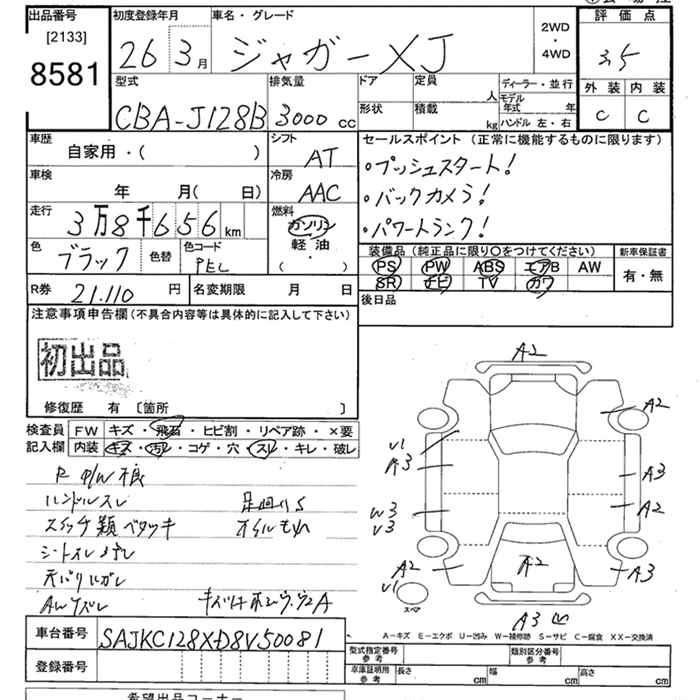 出品番号
[2133]
8581
初度登録年月
26 3月
車名・グレード
ジャガーXJ
2WD
・
4WD
評価点
3.5
外装 内装
C C
型式
CBA-J128B
排気量
3000 cc
ドア
形状
定員
人
積載
kg
ディーラー・並行
モデル年式 年
ハンドル 左・右
車歴
自家用・( )
シフト
AT
車検
年 月( 日)
冷房
AAC
走行
3万8千656km
燃料
ガソリン
軽油
( ・ )
色
ブラック
色替
色コード
PEL
R券
21.110円
名変期限 月 日
セールスポイント (正常に機能するものに限ります)
・プッシュスタート!
・バックカメラ!
・パワートランク!
装備品(純正品に限り〇をつけてください)
PS PW ABS エアB AW
SR ナビ TV カワ
新車保証書
有・無
後日品
注意事項申告欄(不具合内容等は具体的に記入して下さい)
初出品
修復歴 有 〔箇所 〕
検査員記入欄
FW キズ・飛石・ヒビ割・リペア跡・×要
内装 キズ・汚レ・コゲ・穴・スレ・キレ・破レ
ハンドルスレ
足回りS
スイッチ類ベタツキ
オイルもれ
天バリハガレ
AWキズレ
A2
A2
V1
A3
A3
W3
V3
A2
A2
A2
V1
A3
スペア
A3
A-キズ E-エクボ U-凹み W-補修跡 S-サビ C-腐食 XX-交換済
車台番号
SAJKC128X-D8V50081
登録番号
型式指定番号
参考
類別区分番号
参考
車庫証明用
参考
長さ cm
幅 cm
高さ cm
希望出品コーナー